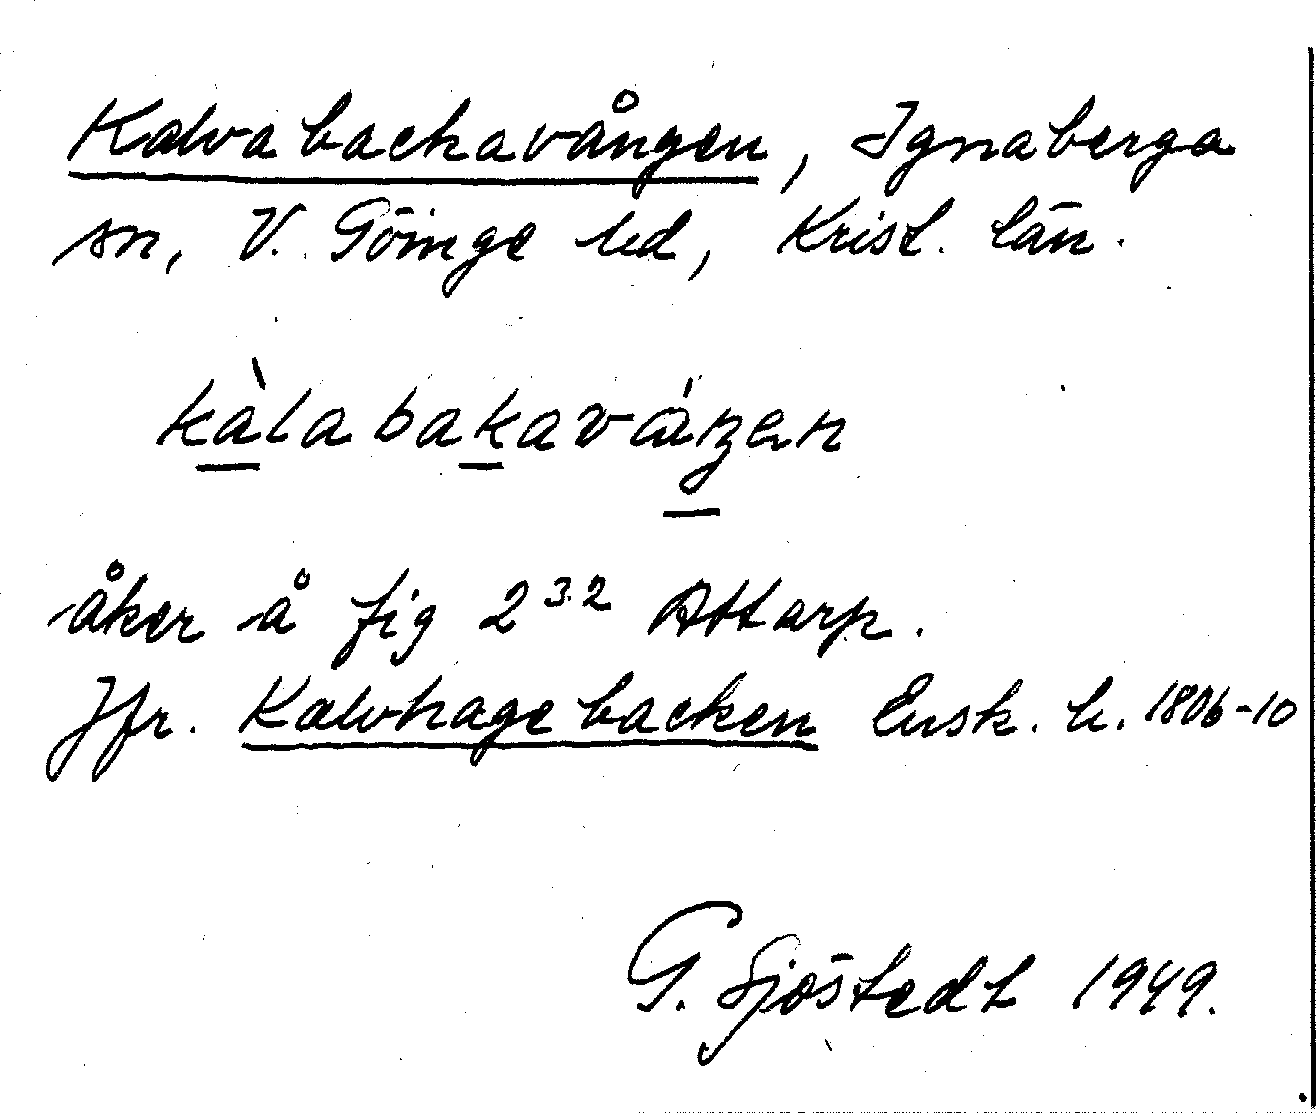 Kalvabackavången, Ignaberga
sn, V. Göinge hd, Krist. län.
kàlabakaváŋen
åker å fig 2 3.2 Attarp.
Jfr. Kalvhagebacken Ensk. h. 1806-10
G. Sjöstedt 1949.